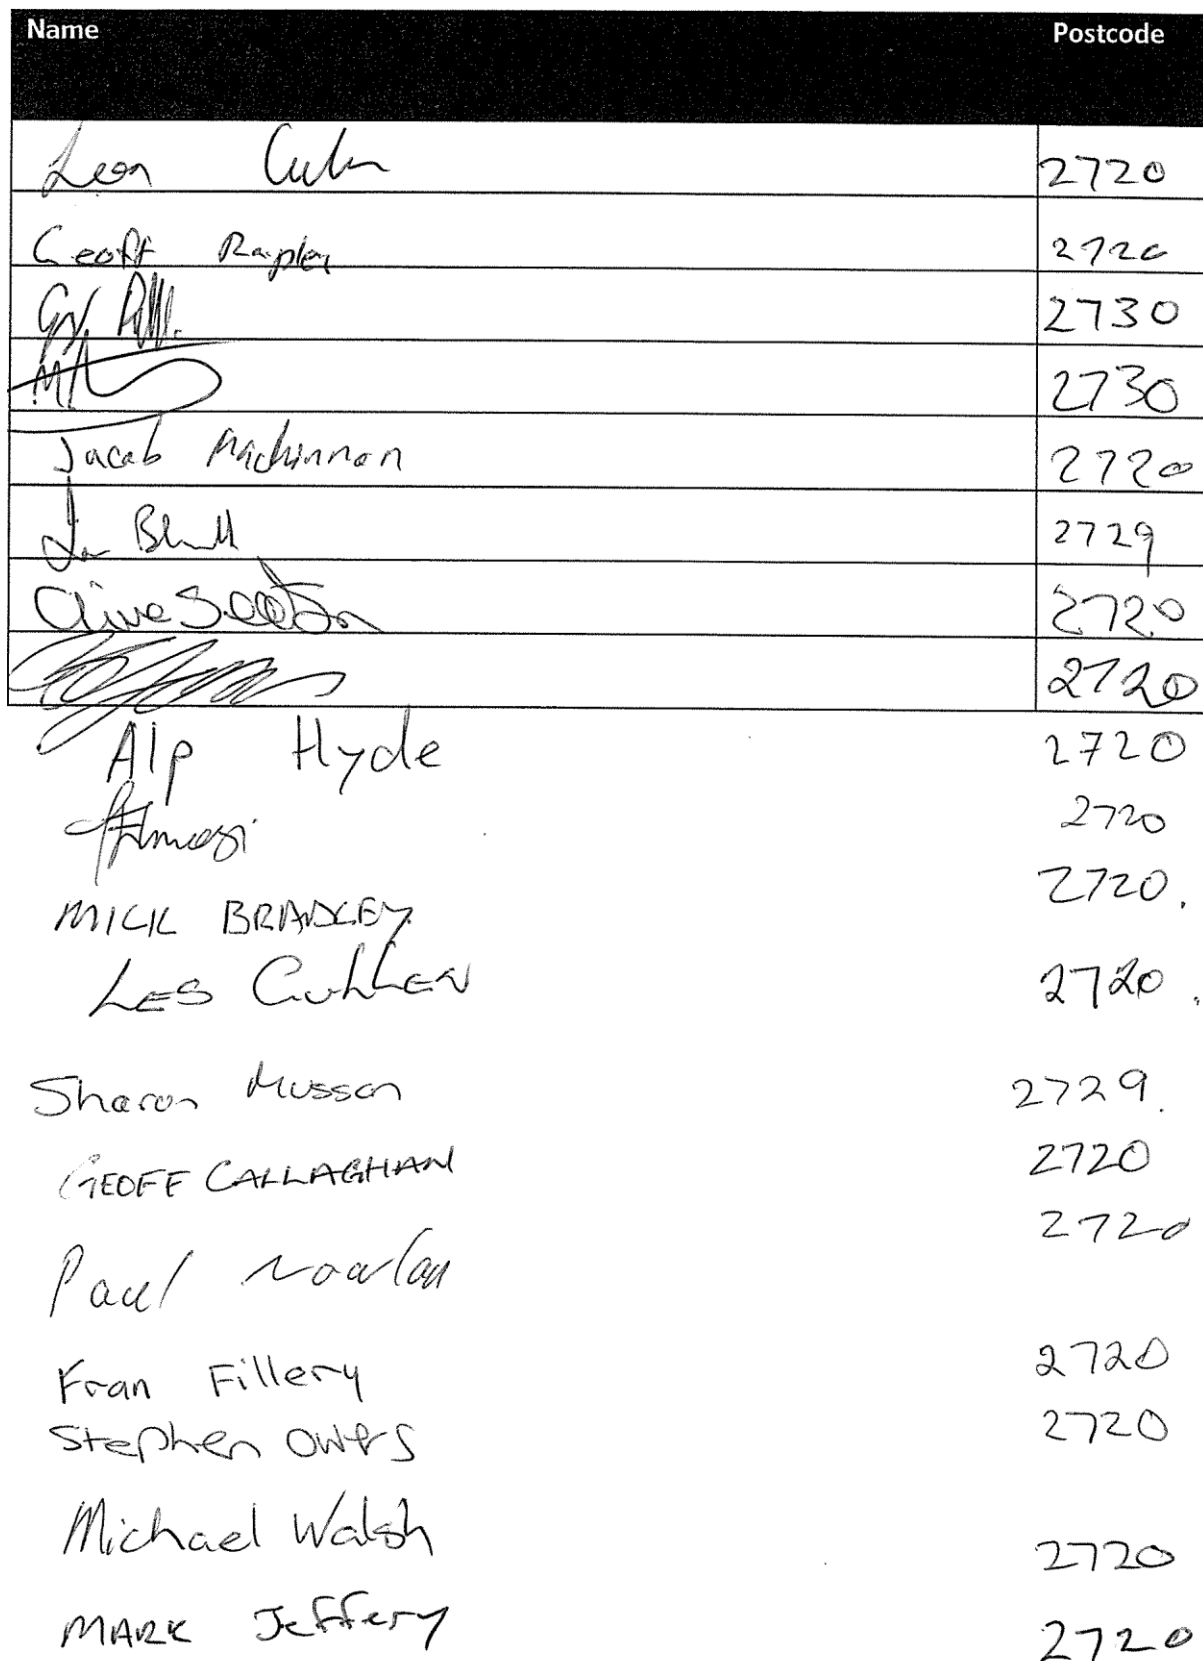 Name Postcode
Leon 2720
Geoff Rapley 2720
2730
2730
Jacob Mackinnon 2720
2729
Clive 2720
2720
Alp Hyde 2720
2720
MICK BRADLEY 2720.
LES CULLEN 2720.
Sharon Musson 2729.
GEOFF CALLAGHAN 2720
Paul Nowlan 2720
Fran Fillery 2720
Stephen Owers 2720
Michael Walsh 2720
MARK Jeffery 2720